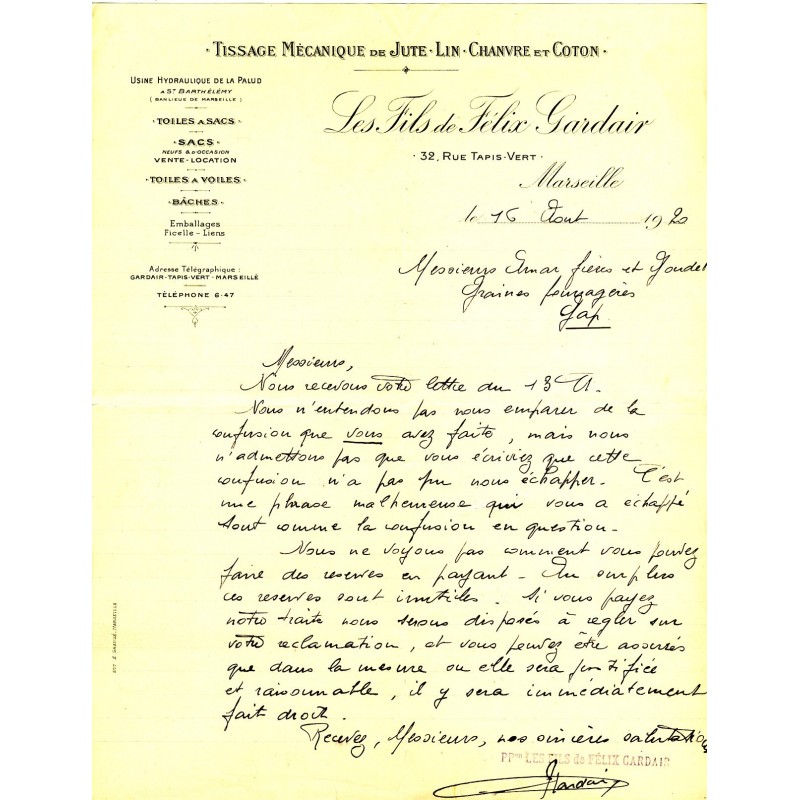 · TISSAGE MÉCANIQUE DE JUTE · LIN · CHANVRE ET COTON ·
USINE HYDRAULIQUE DE LA PALUD
A ST BARTHÉLÉMY
(BANLIEUE DE MARSEILLE)
· TOILES A SACS ·
· SACS ·
NEUFS & D'OCCASION
VENTE - LOCATION
· TOILES A VOILES ·
· BÂCHES ·
Emballages
Ficelle - Liens
Adresse Télégraphique :
GARDAIR - TAPIS-VERT - MARSEILLE
TÉLÉPHONE 6-47
Les Fils de Félix Gardair
· 32, RUE TAPIS-VERT ·
Marseille
le 16 Aout 1920
Messieurs Amar frères et Goudet
Graines fourragères
Gap
Messieurs,
Nous recevons votre lettre du 13 Ct.
Nous n'entendons pas nous emparer de la
confusion que vous avez faite, mais nous
n'admettons pas que vous écriviez que cette
confusion n'a pas pu nous échapper. C'est
une phrase malheureuse qui vous a échappé
tout comme la confusion en question.
Nous ne voyons pas comment vous pouvez
faire des reserves en payant - Au surplus
ces reserves sont inutiles. Si vous payez
notre traite nous serons disposés à regler sur
votre reclamation, et vous pouvez être assurés
que dans la mesure ou elle sera justifiée
et raisonnable, il y sera immédiatement
fait droit.
Recevez, Messieurs, nos sincères salutations
PPon LES FILS de FÉLIX GARDAIR
Gardair